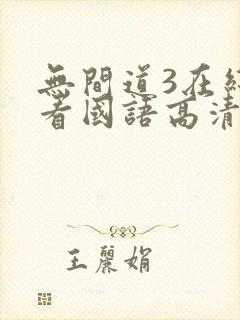 無間道3在線
看國語高清
王麗娟